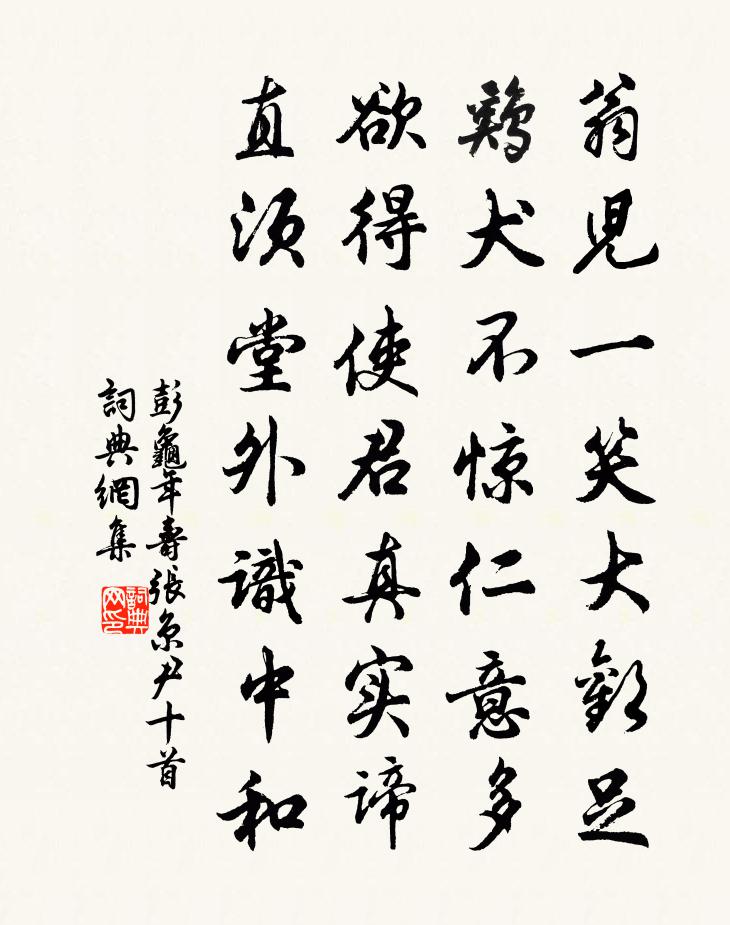 翁兒一笑大歡足
鷄犬不惊仁意多
欲得使君真实諦
直須堂外識中和
彭龜年壽張京尹十首
詞典網集
詞典
网印